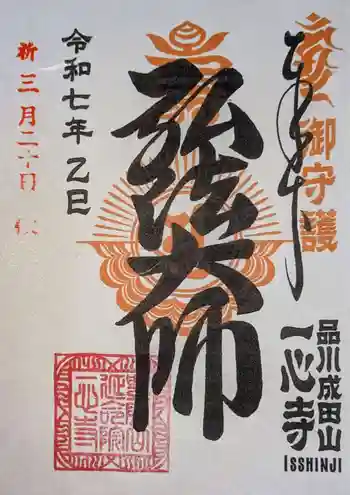 御守護
奉拝
弘法大師
令和七年乙巳
祈 三月二十日
品川成田山
一心寺
ISSHINJI
一心寺